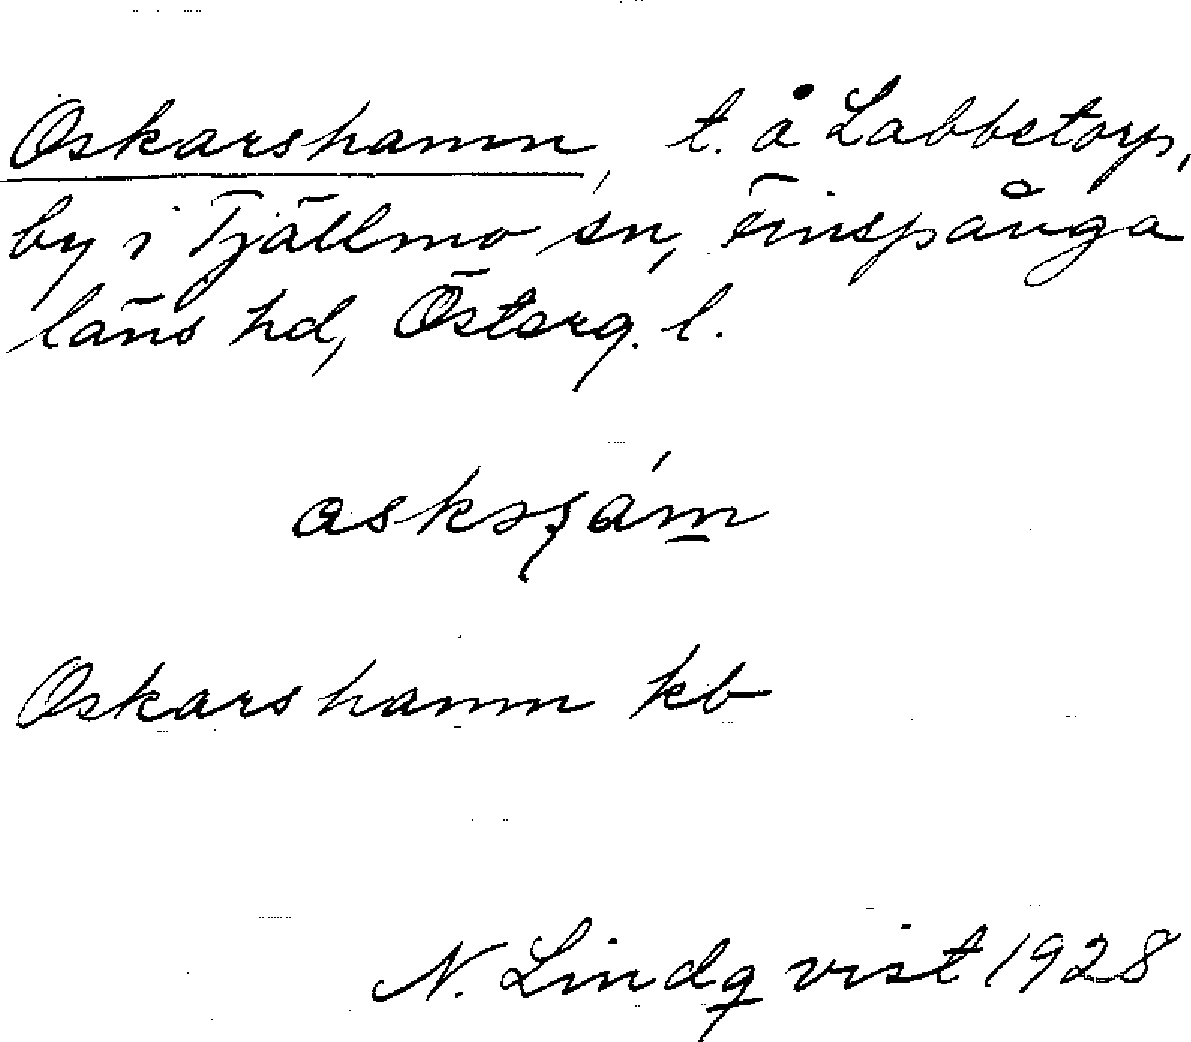 Oskarshamn, t. å Labbetorp,
by i Tjällmo sn, Finspånga
läns hd, Österg. l.
Oskarshamn kb
N. Lindqvist 1928